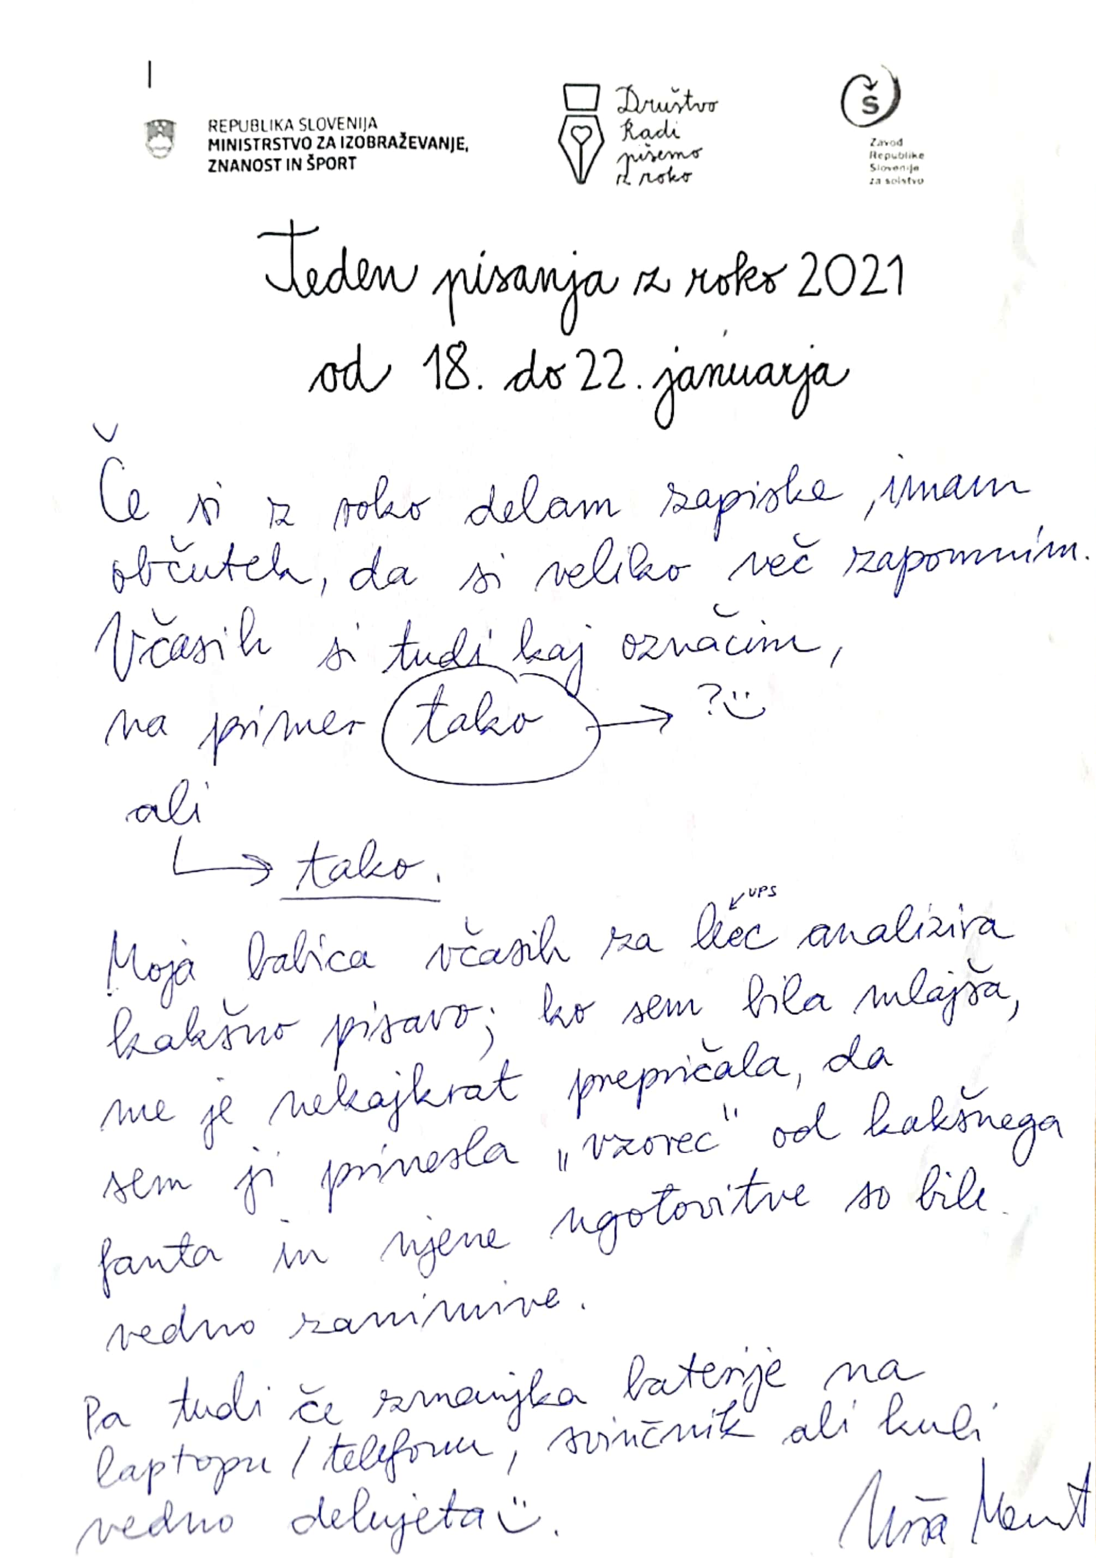 REPUBLIKA SLOVENIJA
MINISTRSTVO ZA IZOBRAŽEVANJE,
ZNANOST IN ŠPORT
Društvo
Radi
pišemo
z roko
Š
Zavod
Republike
Slovenije
za šolstvo
Teden pisanja z roko 2021
od 18. do 22. januarja
Če si z roko delam zapiske, imam
občutek, da si veliko več zapomnim.
Včasih si tudi kaj označim,
na primer tako → ?
ali
↳ tako.
UPS
Moja babica včasih za hec analizira
kakšno pisavo; ko sem bila mlajša,
me je nekajkrat prepričala, da
sem ji prinesla „vzorec" od kakšnega
fanta in njene ugotovitve so bile
vedno zanimive.
Pa tudi če zmanjka baterije na
laptopu / telefonu, svinčnik ali kuli
vedno delujeta.